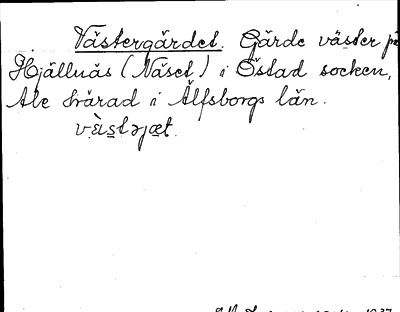 Västergärdet. Gärde väster på
Hjällnäs (Näset) i Östad socken,
Ale härad i Älfsborgs län.
vä̀stəɟæt.